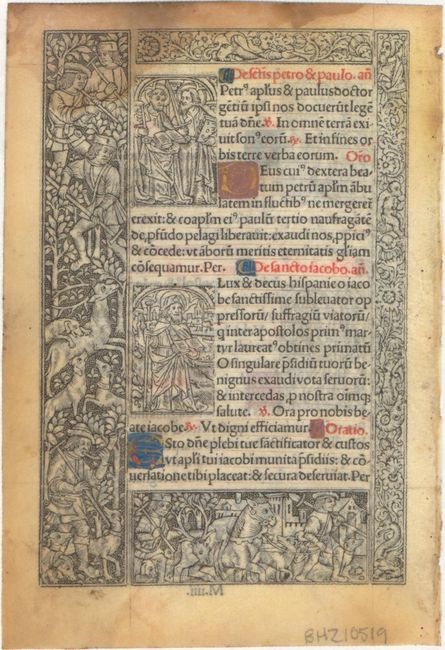 De sctis petro & paulo. añ
Petrꝰ aplus & paulus doctor
gẽtiũ ipsi nos docuerũt legẽ
tuã dñe. ℣. In omnẽ terrã exi
uit sonꝰ eorũ. ℟. Et in fines or
bis terre verba eorum. Oro
Deus cuiꝰ dextera bea
tum petrũ aplm ãbu
latem in fluctibꝰ ne mergeret̃
erexit: & coaplm eiꝰ paulũ tertio naufragãtẽ
de, pfũdo pelagi liberauit: exaudi nos, ppiciꝰ
& cõcede: vt ãborũ meritis eternitatis gliam
cõsequamur. Per. De sancto iacobo. añ.
Lux & decus hispanie o iaco
be sanctissime subleuator op
pressorũ/ suffragiũ viatorũ/
q inter apostolos primꝰ mar
tyr laureatꝰ obtines primatũ
O singulare psidiũ tuorũ be
nignus exaudi vota seruorũ:
& intercedas, p nostra oimq̃
salute. ℣. Ora pro nobis be
ate iacobe. ℟. Vt digni efficiamur. Oratio.
Esto dñe plebi tue sãctificator & custos
vt apli tui iacobi munita psidiis: & cõ
uersatione tibi placeat: & secura deseruiat. Per
M .iiii.
BHZ10519